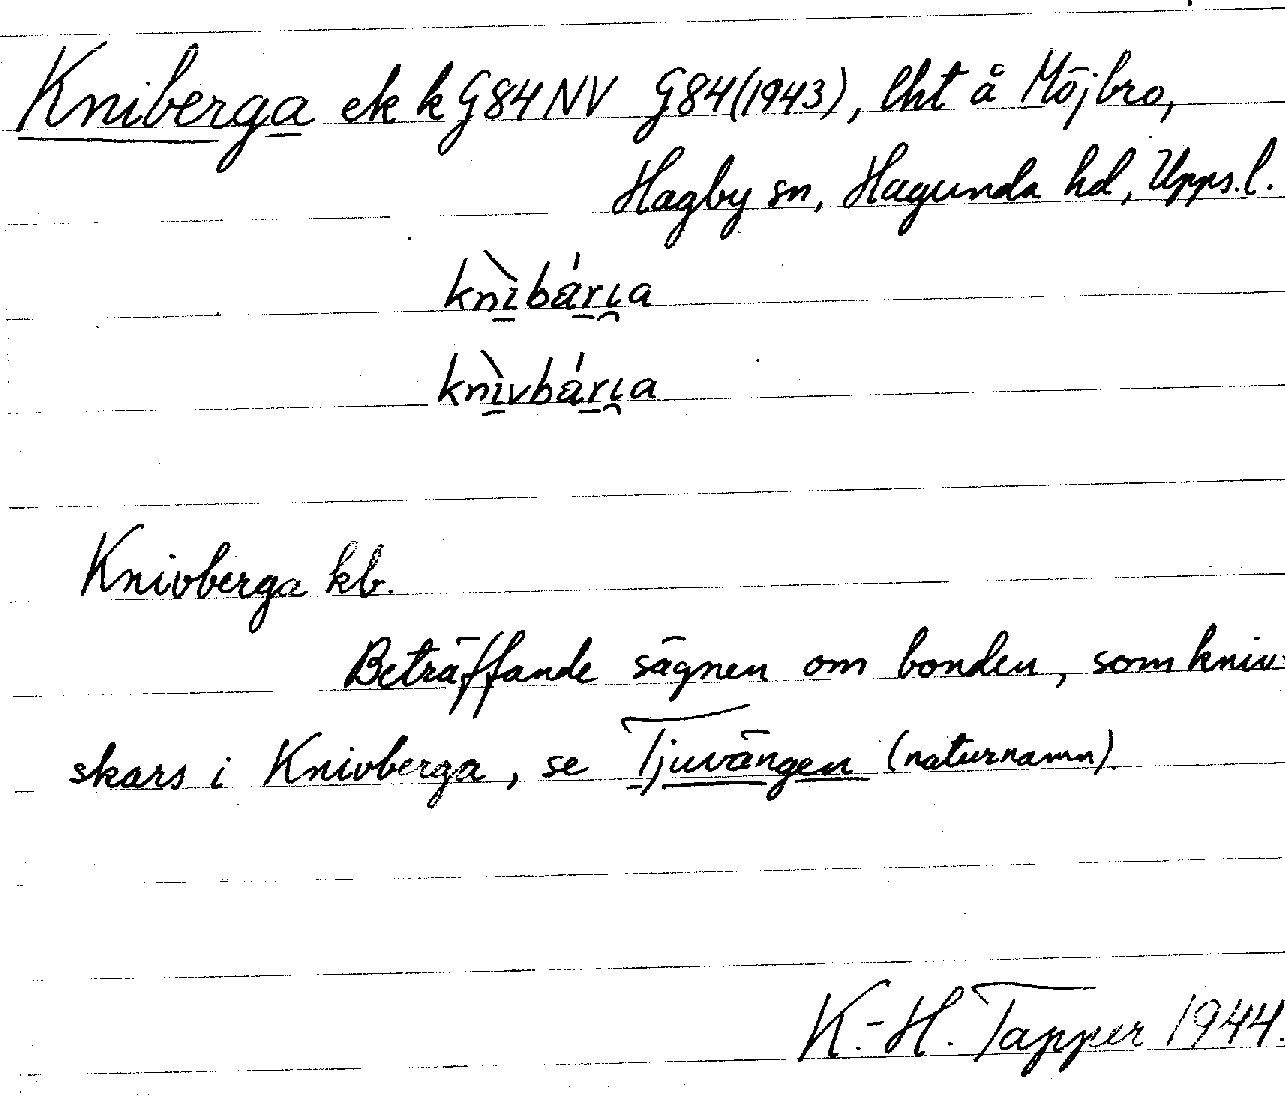 Kniberga ek k G84NV G84(1943), lht å Möjbro,
Hagby sn, Hagunda hd, Upps.l.
knìbárɩa
knìvbárɩa
Knivberga kb.
Beträffande sägnen om bonden, som kniv-
skars i Knivberga, se Tjuvängen (naturnamn).
K.-H. Tapper 1944.